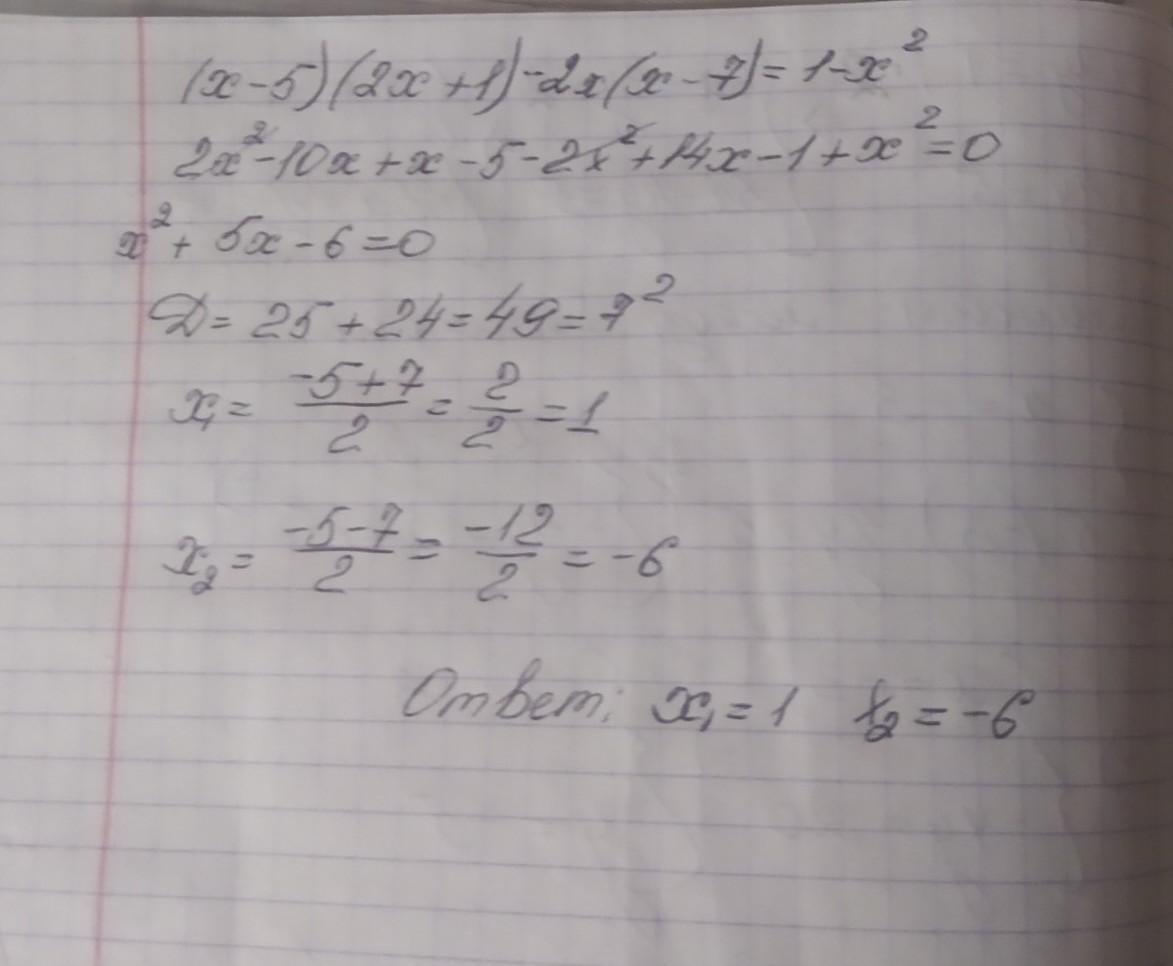 (x-5)(2x+1)-2x(x-7)=1-x²
2x²-10x+x-5-2x²+14x-1+x²=0
x²+5x-6=0
D=25+24=49=7²
x₁= (-5+7)/2 = 2/2 =1
x₂= (-5-7)/2 = -12/2 = -6
Ответ: x₁=1 x₂=-6